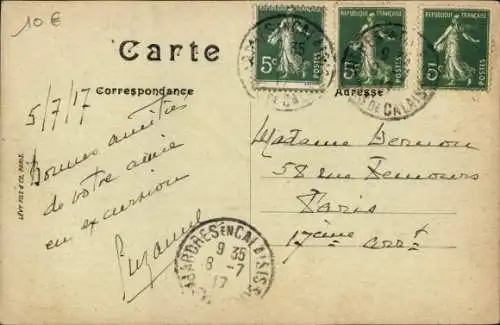 10€
Carte
Correspondance
Adresse
5/7/17
Bonnes amitiés
de votre amie
en excursion
Suzanne
Madame Vernon
58 rue Nemours
Paris
17ème arrt
LÉVY FILS & CIE, PARIS.
RÉPUBLIQUE FRANÇAISE
5c
POSTES
RÉPUBLIQUE FRANÇAISE
5c
POSTES
RÉPUBLIQUE FRANÇAISE
5c
POSTES
ARDRES EN CALAISIS
9 35
8 -7
17
PAS DE CALAIS